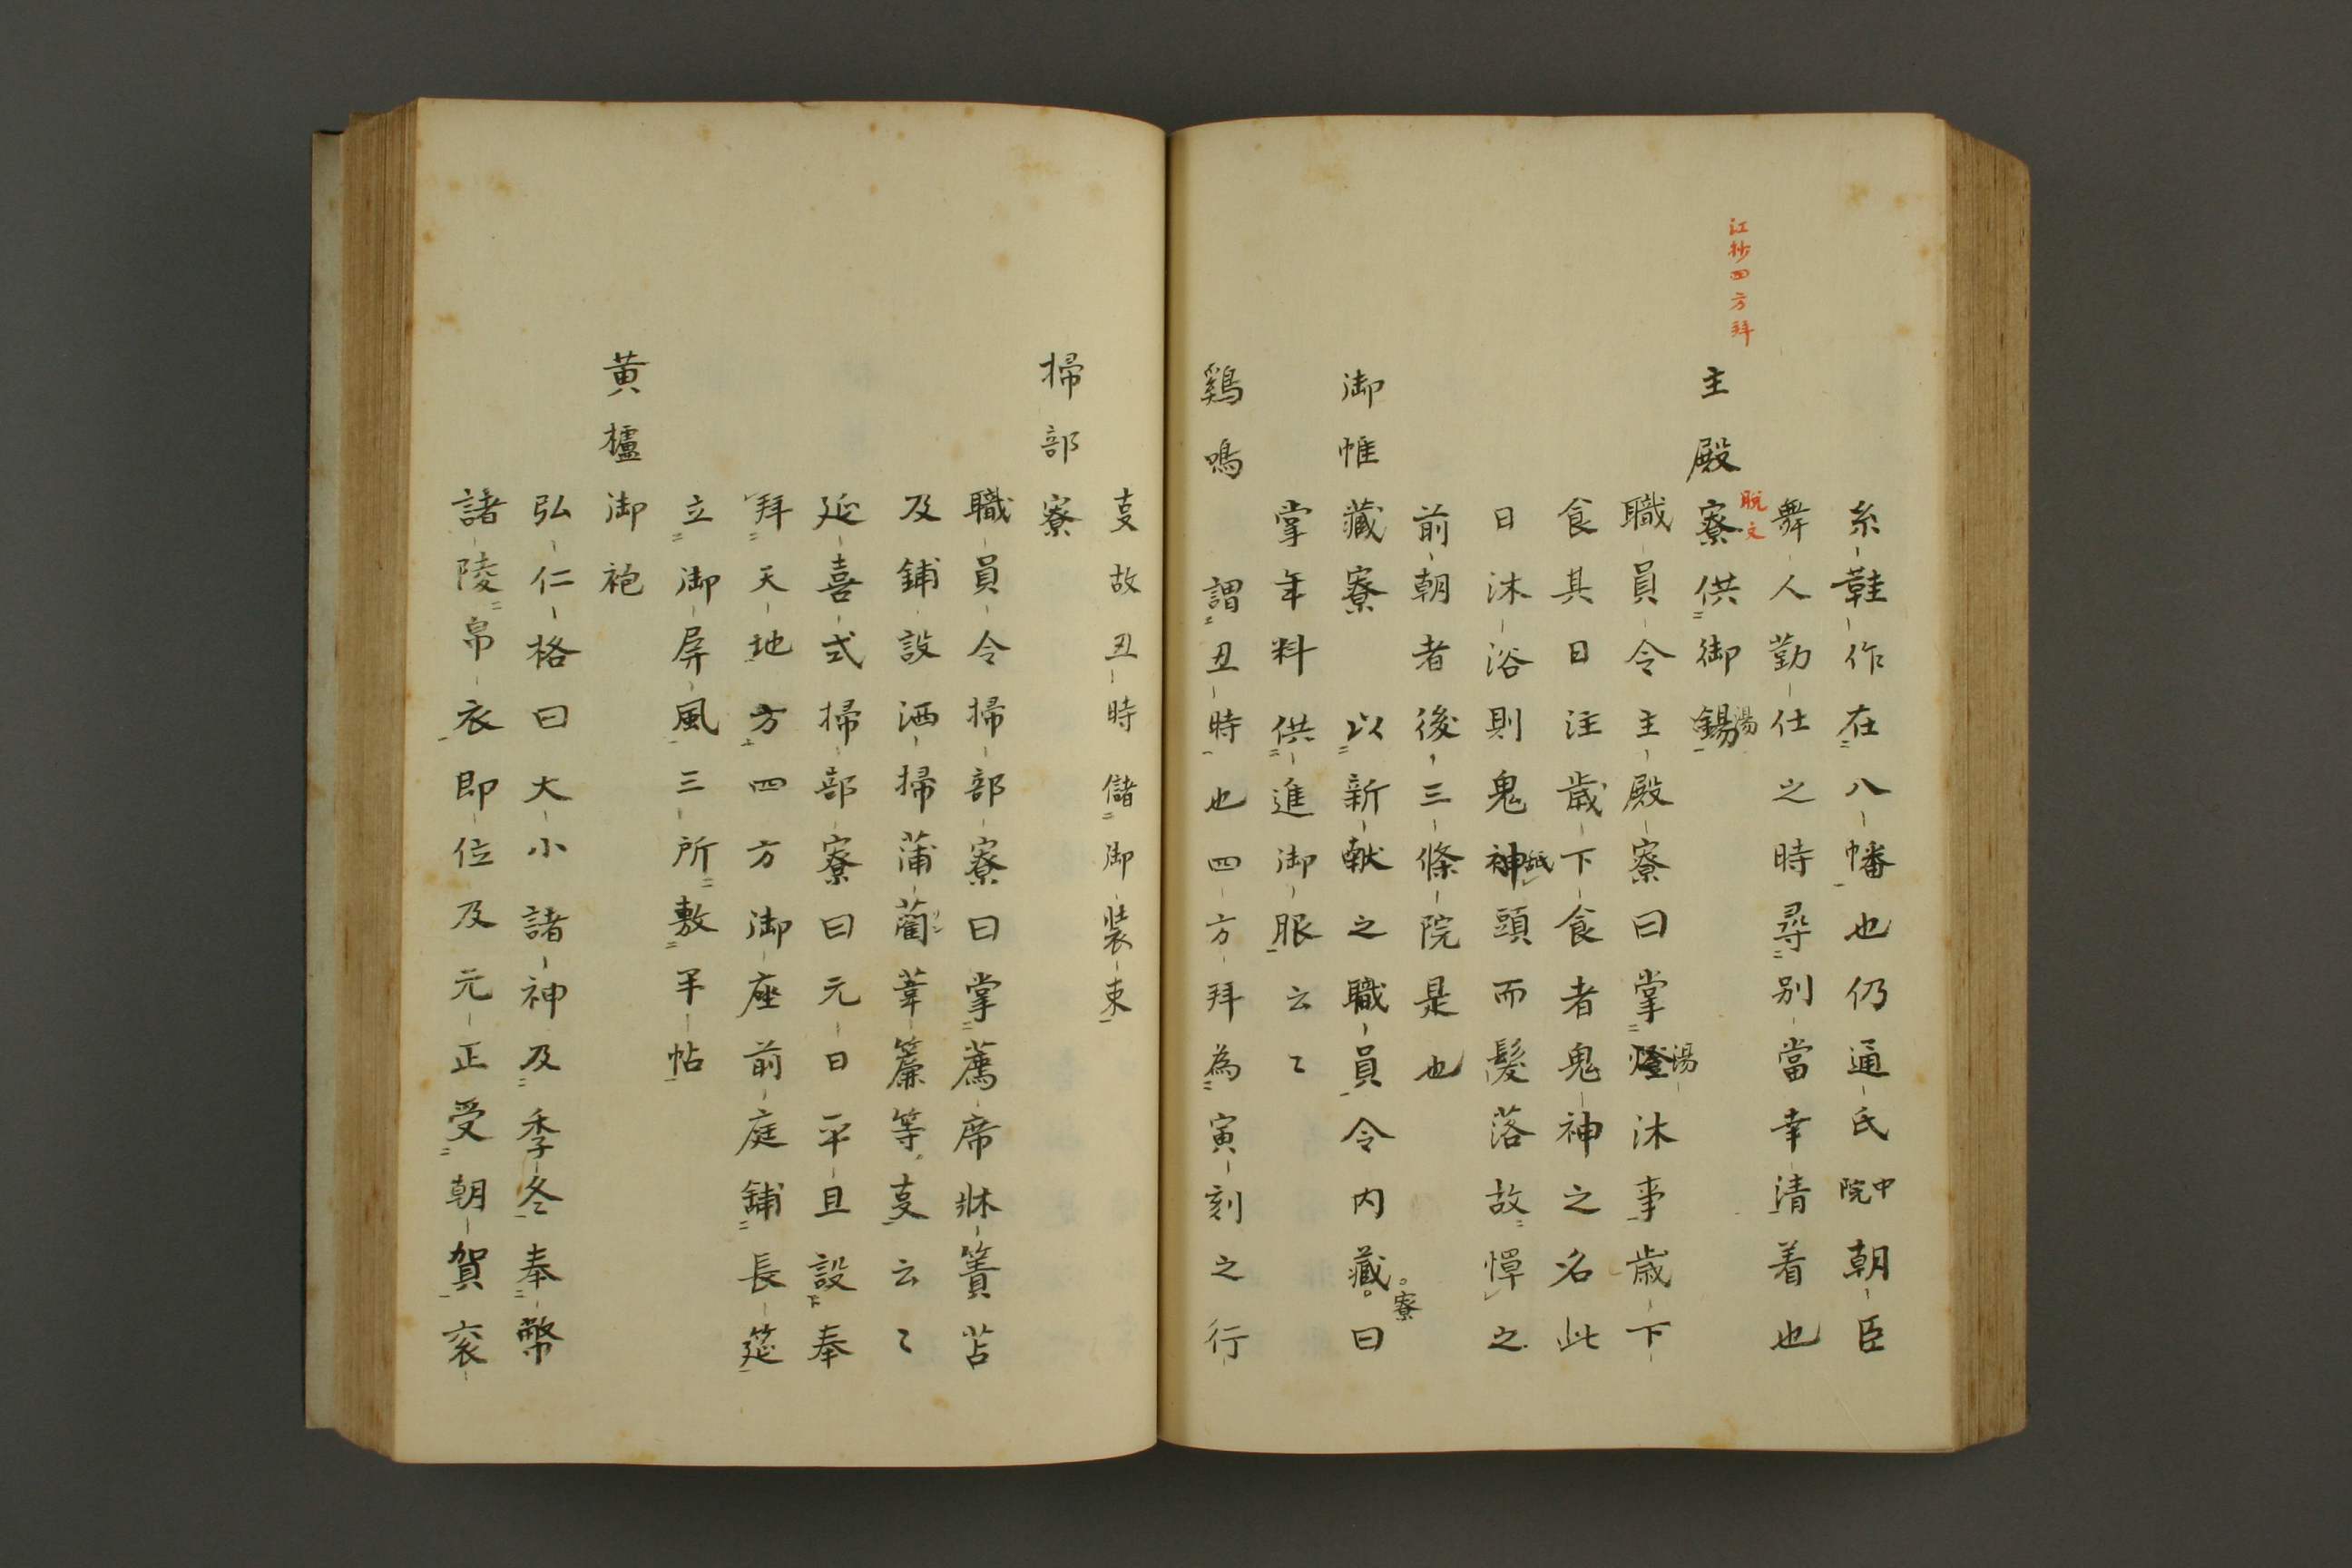 糸鞋作在八幡也仍通氏中院朝臣
舞人勤仕之時尋別當幸清着也
江抄四方拜
脱文
主殿寮供御錫湯
職員令主殿寮曰掌燈湯沐事歳下
食其日注歳下食者鬼神之名此
日沐浴則鬼神舐頭而髪落故憚之
前朝者後三條院是也
御帷藏寮以新献之職員令内藏寮曰
掌年料供進御服云〻
鷄鳴謂丑時也四方拜為寅刻之行
叓故丑時儲御装束
掃部寮
職員令掃部寮曰掌薦席牀簀苫
及鋪設洒掃蒲藺葦簾等叓云〻
延喜式掃部寮曰元日平旦設奉
拜天地方四方御座前庭鋪長筵
立御屏風三所敷半帖
黄櫨御袍
弘仁格曰大小諸神及季冬奉幣
諸陵帛衣即位及元正受朝賀衮